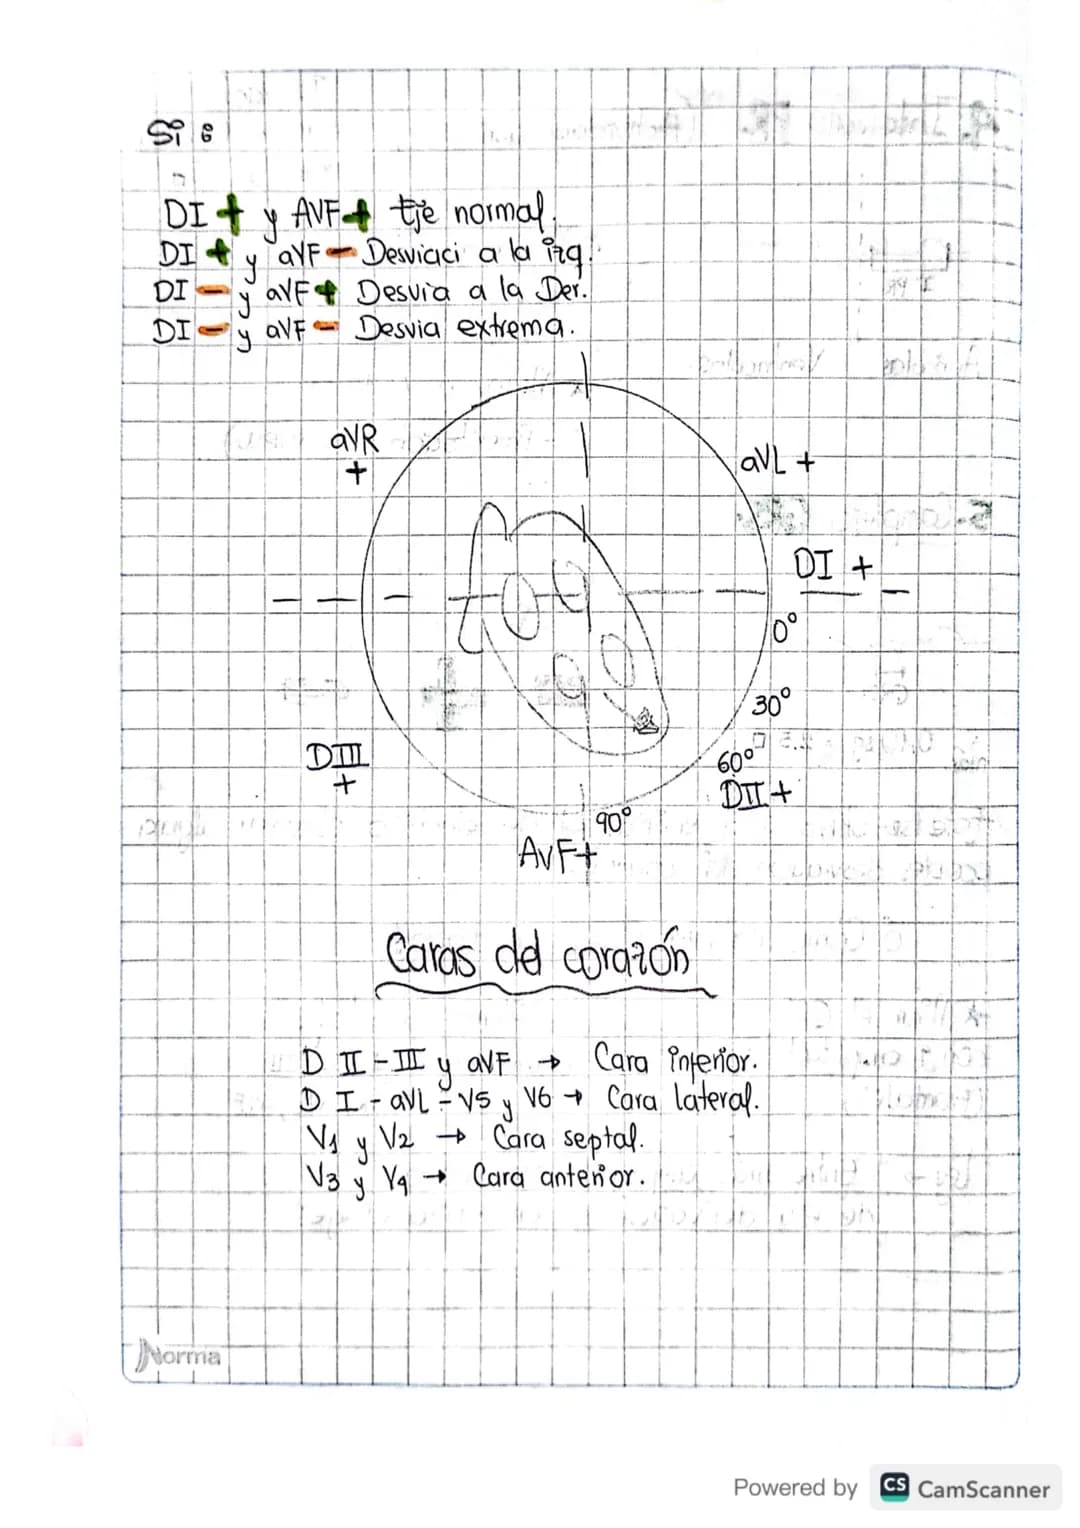 Si :
DI + y AVF + Eje normal.
DI + y aVF - Desviaci a la izq.
DI - y aVF + Desvia a la Der.
DI - y aVF - Desvia extrema.
aVR
+
aVL +
DI +
0°
30°
60°
DIII
+
DII +
90°
AVF+
Caras del corazón
D II - III y aVF → Cara inferior.
D I - aVL - V5 y V6 → Cara lateral.
V1 y V2 → Cara septal.
V3 y V4 → Cara anterior.
Norma
Powered by CS CamScanner